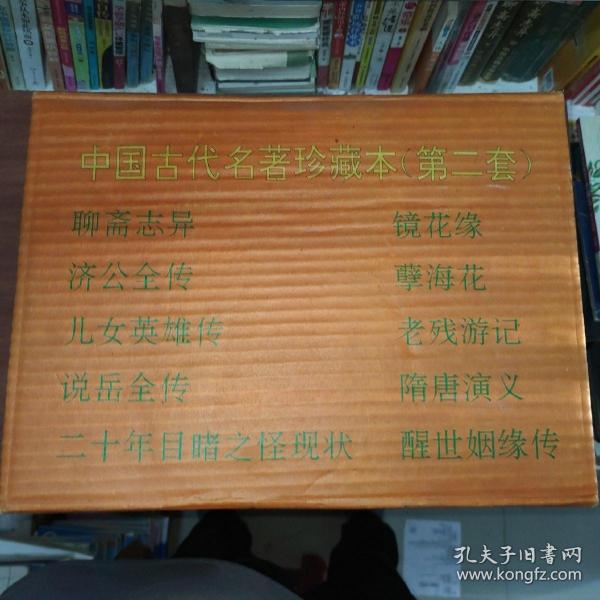 中国古代名著珍藏本(第二套)
聊斋志异
镜花缘
济公全传
孽海花
儿女英雄传
老残游记
说岳全传
隋唐演义
二十年目睹之怪现状
醒世姻缘传
孔夫子旧书网
www.kongfz.com